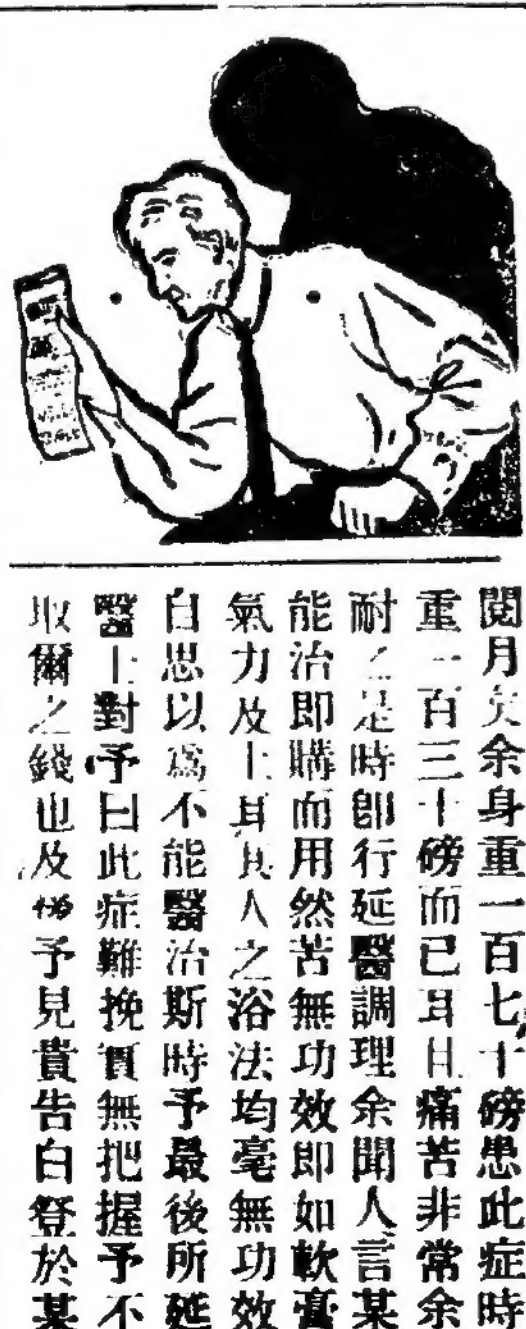 閱月矣余身重一百七十磅患此症時
重一百三十磅而已耳且痛苦非常余
耐之是時卽行延醫調理余聞人言某
能治即購而用然苦無功效即如軟膏
氣力及土耳其人之浴法均毫無功效
自思以爲不能醫治斯時予最後所延
醫士對予曰此症難挽實無把握予不
取爾之錢也及予見貴告白登於某